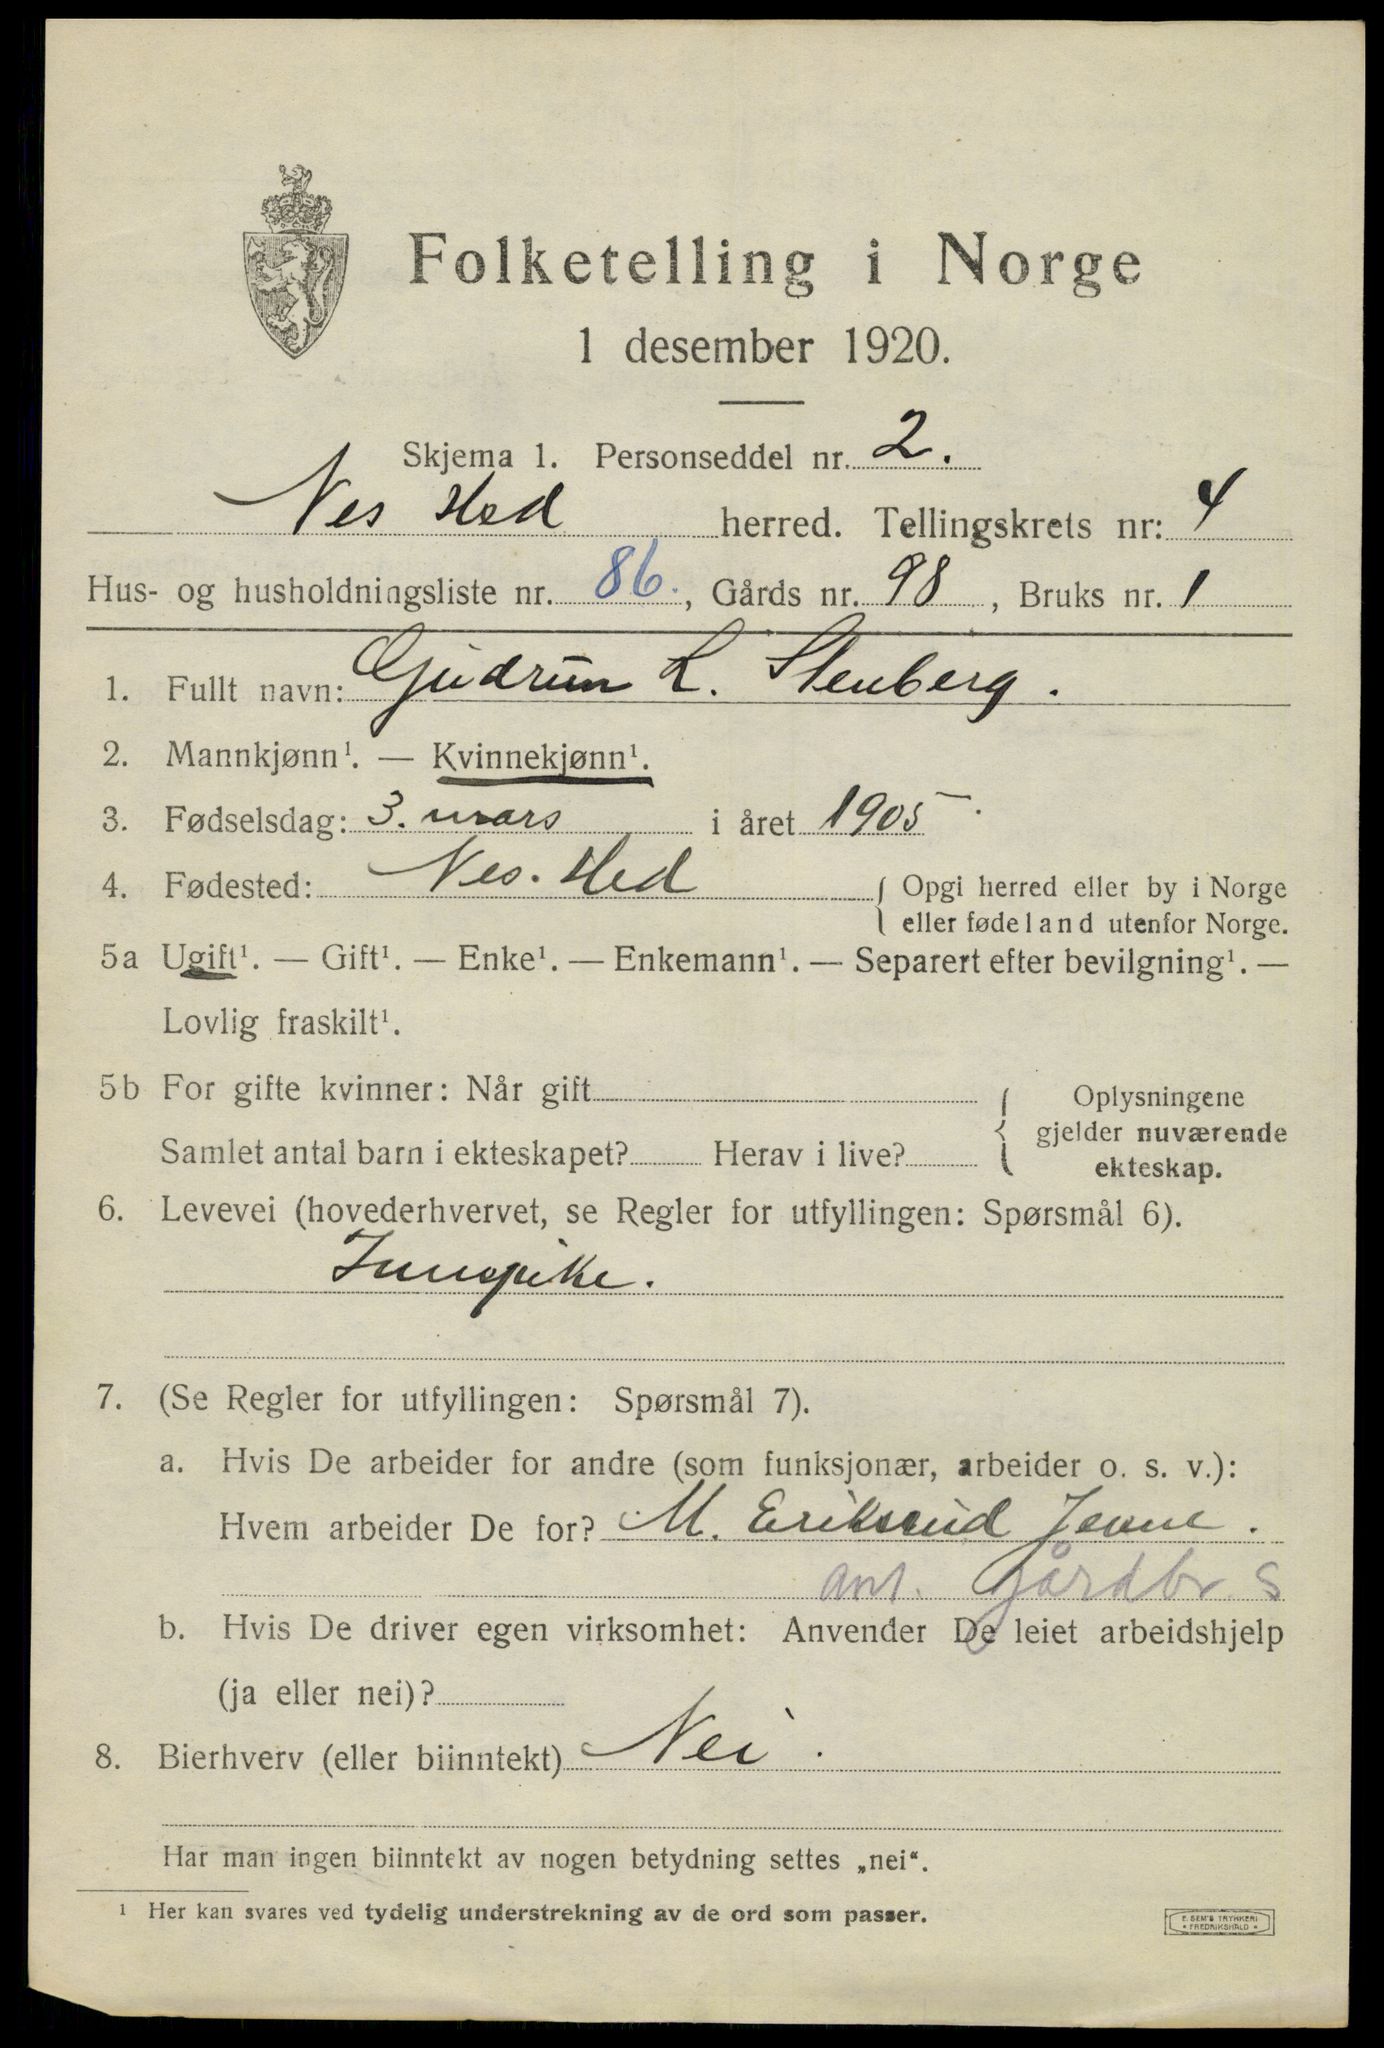 Folketelling i Norge
1 desember 1920.
Skjema 1. Personseddel nr. 2.
Nes Hed herred. Tellingskrets nr: 4
Hus- og husholdningsliste nr. 86., Gårds nr. 98, Bruks nr. 1
1. Fullt navn: Gudrun L. Stenberg.
2. Mannkjønn¹. — Kvinnekjønn¹.
3. Fødselsdag: 3. mars i året 1905.
4. Fødested: Nes. Hed { Opgi herred eller by i Norge
eller fødeland utenfor Norge.
5a Ugift¹. — Gift¹. — Enke¹. — Enkemann¹. — Separert efter bevilgning¹. —
Lovlig fraskilt¹.
5b For gifte kvinner: Når gift { Oplysningene
gjelder nuværende
Samlet antal barn i ekteskapet? Herav i live? ekteskap.
6. Levevei (hovederhvervet, se Regler for utfyllingen: Spørsmål 6).
Innepike.
7. (Se Regler for utfyllingen: Spørsmål 7).
a. Hvis De arbeider for andre (som funksjonær, arbeider o. s. v.):
Hvem arbeider De for? M. Eriksrud Jevne.
ant. Gårdbr. S
b. Hvis De driver egen virksomhet: Anvender De leiet arbeidshjelp
(ja eller nei)?
8. Bierhverv (eller biinntekt) Nei.
Har man ingen biinntekt av nogen betydning settes „nei“.
¹ Her kan svares ved tydelig understrekning av de ord som passer.
E. SEM'S TRYKKERI
• FREDRIKSHALD •